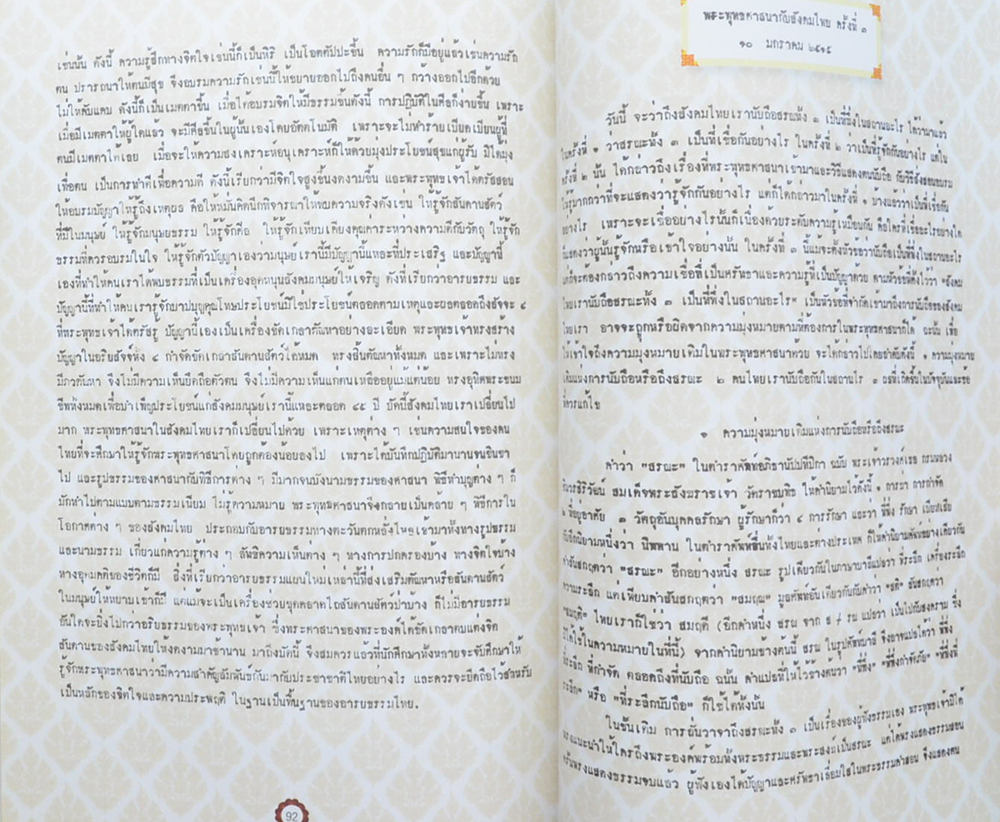 เช่นนั้น ดังนี้ ความรู้สึกทางจิตใจเช่นนี้ก็เป็นหิริ เป็นโอตตัปปะขึ้น ความรักก็มีอยู่แล้วเช่นความรัก
ตน ปรารถนาให้ตนมีสุข จึงอบรมความรักเช่นนี้ให้ขยายออกไปถึงคนอื่น ๆ กว้างออกไปอีกด้วย
ไม่ให้คับแคบ ดังนี้ก็เป็นเมตตาขึ้น เมื่อได้อบรมจิตให้มีธรรมขึ้นดังนี้ การปฏิบัติในศีลก็ง่ายขึ้น เพราะ
เมื่อมีเมตตาให้ผู้ใดแล้ว จะมีศีลขึ้นในผู้นั้นเองโดยอัตตโนมัติ เพราะจะไม่ทำร้ายเบียดเบียนผู้ที่
ตนมีเมตตาให้เลย เมื่อจะให้ความสงเคราะห์อนุเคราะห์ก็ให้ด้วยมุ่งประโยชน์สุขแก่ผู้รับ มิได้มุ่ง
เพื่อตน เป็นการทำดีเพื่อความดี ดังนี้เรียกว่ามีจิตใจสูงขึ้นงดงามขึ้น และพระพุทธเจ้าได้ตรัสสอน
ให้อบรมปัญญาให้รู้ถึงเหตุผล คือให้หมั่นคิดนึกพิจารณาให้พบความจริงดังเช่น ให้รู้จักสันดานสัตว์
ที่มีในมนุษย์ ให้รู้จักมนุษยธรรม ให้รู้จักคิด ให้รู้จักเทียบเคียงคุณค่าระหว่างความดีกับวัตถุ ให้รู้จัก
ธรรมที่ควรอบรมในใจ ให้รู้จักตัวปัญญาเองว่ามนุษย์เรานี้มีปัญญานี้แหละที่ประเสริฐ และปัญญานี้
เองที่ทำให้คนเราได้พบธรรมที่เป็นเครื่องอุดหนุนสังคมมนุษย์ให้เจริญ ดังที่เรียกว่าอารยธรรม และ
ปัญญานี้ที่ทำให้คนเรารู้จักบาปบุญคุณโทษประโยชน์มิใช่ประโยชน์ตลอดตามเหตุและผลตลอดถึงสัจจะ ๔
ที่พระพุทธเจ้าได้ตรัสรู้ ปัญญานี้เองเป็นเครื่องขัดเกลาตัณหาอย่างละเอียด พระพุทธเจ้าทรงสร้าง
ปัญญาในอริยสัจจ์ทั้ง ๔ กำจัดขัดเกลาสันดานสัตว์ได้หมด ทรงสิ้นตัณหาทั้งหมด และเพราะไม่ทรง
มีภวตัณหา จึงไม่มีความเห็นยึดถือตัวตน จึงไม่มีความเห็นแก่ตนเหลืออยู่แม้แต่น้อย ทรงอุทิศพระชนม
ชีพทั้งหมดเพื่อบำเพ็ญประโยชน์แก่สังคมมนุษย์เรานี้แหละตลอด ๔๕ ปี บัดนี้สังคมไทยเราเปลี่ยนไป
มาก พระพุทธศาสนาในสังคมไทยเราก็เปลี่ยนไปด้วย เพราะเหตุต่าง ๆ เช่นความสนใจของคน
ไทยที่จะศึกษาให้รู้จักพระพุทธศาสนาโดยถูกต้องน้อยลงไป เพราะได้นับถือปฏิบัติมานานจนชินชา
ไป และรูปธรรมของศาสนากับพิธีการต่าง ๆ มีมากจนบังนามธรรมของศาสนา พิธีทำบุญต่าง ๆ ก็
มักทำไปตามแบบตามธรรมเนียม ไม่รู้ความหมาย พระพุทธศาสนาจึงกลายเป็นคล้าย ๆ พิธีการใน
โอกาสต่าง ๆ ของสังคมไทย ประกอบกับอารยธรรมทางตะวันตกหลั่งไหลเข้ามาทั้งทางรูปธรรม
และนามธรรม เกี่ยวแก่ความรู้ต่าง ๆ ลัทธิความเห็นต่าง ๆ ทางการปกครองบ้าง ทางจิตใจบ้าง
ทางอุดมคติของชีวิตก็มี สิ่งที่เรียกว่าอารยธรรมแผนใหม่เหล่านี้ที่ส่งเสริมตัณหาหรือสันดานสัตว์
ในมนุษย์ให้หยาบเข้าก็มี แต่แม้จะเป็นเครื่องช่วยขูดถลาดไถสันดานสัตว์ป่าบ้าง ก็ไม่มีอารยธรรม
อันใดจะยิ่งไปกว่าอริยธรรมของพระพุทธเจ้า ซึ่งพระศาสนาของพระองค์ได้ขัดเกลาตบแต่งจิต
สันดานของสังคมไทยให้งดงามมาช้านาน มาถึงบัดนี้ จึงสมควรแล้วที่นักศึกษาทั้งหลายจะจับศึกษาให้
รู้จักพระพุทธศาสนาว่ามีความสำคัญสัมพันธ์กันมากับประชาชาติไทยอย่างไร และควรจะยึดถือไว้สำหรับ
เป็นหลักของจิตใจและความประพฤติ ในฐานะเป็นพื้นฐานของอารยธรรมไทย.
92
พระพุทธศาสนากับสังคมไทย ครั้งที่ ๓
๑๐ มกราคม ๒๕๑๕
วันนี้ จะว่าถึงสังคมไทยเรานับถือสรณะทั้ง ๓ เป็นที่พึ่งในสถานะไร ได้ว่ามาแล้ว
ในครั้งที่ ๑ ว่าสรณะทั้ง ๓ เป็นที่เชื่อกันอย่างไร ในครั้งที่ ๒ ว่าเป็นที่รู้จักกันอย่างไร แต่ใน
ครั้งที่ ๒ นั้น ได้กล่าวถึงเรื่องที่พระพุทธศาสนาเข้ามาและวิธีแสดงตนนับถือ กับวิธีสั่งสอนอบรม
ให้รู้มากกว่าที่จะแสดงว่ารู้จักกันอย่างไร แต่ก็ได้กล่าวมาในครั้งที่ ๑ บ้างแล้วว่าเป็นที่เชื่อกัน
อย่างไร เพราะจะเชื่ออย่างไรนั้นก็เนื่องด้วยระดับความรู้เหมือนกัน คือใครที่เชื่ออะไรอย่างใด
แสดงว่าผู้นั้นรู้จักหรือเข้าใจอย่างนั้น ในครั้งที่ ๓ นี้แม้จะตั้งหัวข้อว่านับถือเป็นที่พึ่งในสถานะไร
แต่ก็จะต้องกล่าวถึงความเชื่อที่เป็นศรัทธาและความรู้ที่เป็นปัญญาด้วย ตามหัวข้อที่ตั้งไว้ว่า "สังคม
ไทยเรานับถือสรณะทั้ง ๓ เป็นที่พึ่งในสถานะไร" เป็นหัวข้อที่จำกัดเข้ามาถึงการนับถือของสังคม
ไทยเรา อาจจะถูกหรือผิดจากความมุ่งหมายตามที่ต้องการในพระพุทธศาสนาก็ได้ ฉะนั้น เพื่อ
ให้เข้าใจถึงความมุ่งหมายเดิมในพระพุทธศาสนาด้วย จะได้กล่าวไปโดยลำดับดังนี้ ๑ ความมุ่งหมาย
เดิมแห่งการนับถือหรือถึงสรณะ ๒ คนไทยเรานับถือกันในสถานไร ๓ ผลที่เกิดขึ้นในปัจจุบันและข้อ
ที่ควรแก้ไข
๑ ความมุ่งหมายเดิมแห่งการนับถือหรือถึงสรณะ
คำว่า "สรณะ" ในตำราศัพท์อภิธานัปปทีปิกา ฉบับ พระเจ้าวรวงศ์เธอ กรมหลวง
ชินวรสิริวัฒน์ สมเด็จพระสังฆราชเจ้า วัดราชบพิธ ให้คำนิยามไว้ดังนี้ ๑ การฆ่า การกำจัด
๒ ที่อยู่อาศัย ๓ วัตถุอันบุคคลรักษา ผู้รักษาก็ว่า ๔ การรักษา และว่า ที่พึ่ง รักษา เบียดเบียน
กับอีกนิยามหนึ่งว่า นิพพาน ในตำราศัพท์อื่นทั้งไทยและต่างประเทศ ก็ให้คำนิยามคล้ายอย่างเดียวกัน
คำสันสกฤตว่า "สรณะ" อีกอย่างหนึ่ง สรณะ รูปเดียวกันในภาษาบาลีแปลว่า ที่ระลึก เครื่องระลึก
ความระลึก แต่เพี่ยมคำสันสกฤตว่า "สมฤณ" มูลศัพท์อันเดียวกันกับคำว่า "สติ" สันสกฤตว่า
"สมฤติ" ไทยเราก็ใช้ว่า สมฤดี (อีกคำหนึ่ง สรณ จาก ส + รณ แปลว่า เป็นไปกับสงคราม ซึ่ง
มิได้ใช้ในความหมายในที่นี้) จากคำนิยามข้างต้นนี้ สรณ ในรูปศัพท์บาลี จึงอาจแปลได้ว่า ที่พึ่ง
ที่ระลึก ที่กำจัด ตลอดถึงที่นับถือ ฉะนั้น คำแปลที่ให้ไว้ข้างต้นว่า "ที่พึ่ง" "ที่พึ่งกำจัดภัย" "ที่พึ่งที่
ระลึก" หรือ "ที่ระลึกนับถือ" ก็ใช้ได้ทั้งนั้น
ในชั้นเดิม การลั่นวาจาถึงสรณะทั้ง ๓ เป็นเรื่องของผู้ฟังธรรมเอง พระพุทธเจ้ามิได้
ทรงแนะนำให้ใครถึงพระองค์พร้อมทั้งพระธรรมและพระสงฆ์เป็นสรณะ แต่ได้ทรงแสดงธรรมสอน
ครั้นทรงแสดงธรรมจบแล้ว ผู้ฟังเองได้ปัญญาและศรัทธาเลื่อมใสในพระธรรมคำสอน จึงแสดงตน